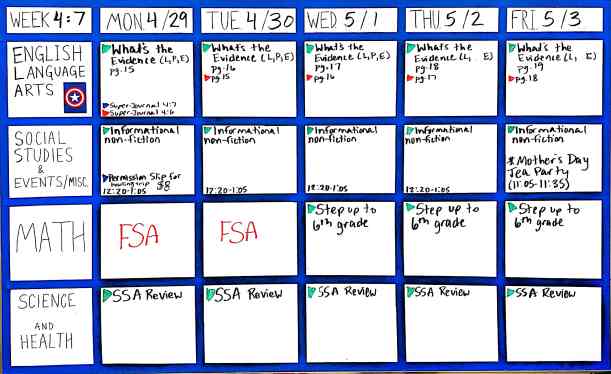 WEEK 4:7
MON. 4/29
TUE 4/30
WED 5/1
THU. 5/2
FRI. 5/3
ENGLISH
LANGUAGE
ARTS
What's the
Evidence (L,P,E)
pg. 15
Super-Journal 4:7
Super-Journal 4:6
What's the
Evidence (L,P,E)
pg. 16
pg. 15
What's the
Evidence (L,P,E)
pg. 17
pg. 16
What's the
Evidence (L, E)
pg. 18
pg. 17
What's the
Evidence (L, E)
pg. 19
pg. 18
SOCIAL
STUDIES
&
EVENTS/MISC.
Informational
non-fiction
Permission Slip for
bowling trip $8
12:20-1:05
Informational
non-fiction
12:20-1:05
Informational
non-fiction
12:20-1:05
Informational
non-fiction
12:20-1:05
Informational
non-fiction
Mother's Day
Tea Party
(11:05-11:35)
MATH
FSA
FSA
Step up to
6th grade
Step up to
6th grade
Step up to
6th grade
SCIENCE
AND
HEALTH
SSA Review
SSA Review
SSA Review
SSA Review
SSA Review